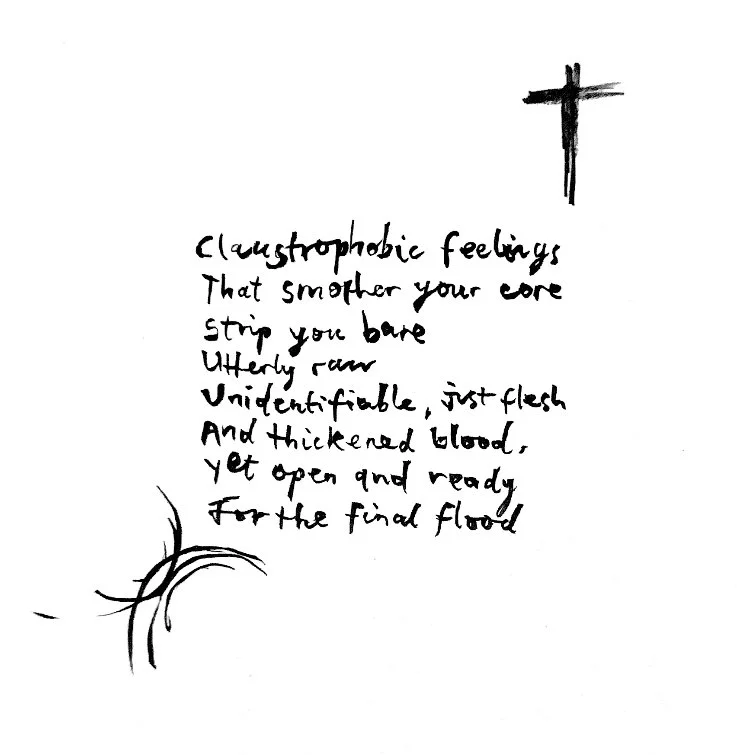 Claustrophobic feelings
That smother your core
Strip you bare
Utterly raw
Unidentifiable, just flesh
And thickened blood,
Yet open and ready
For the final flood